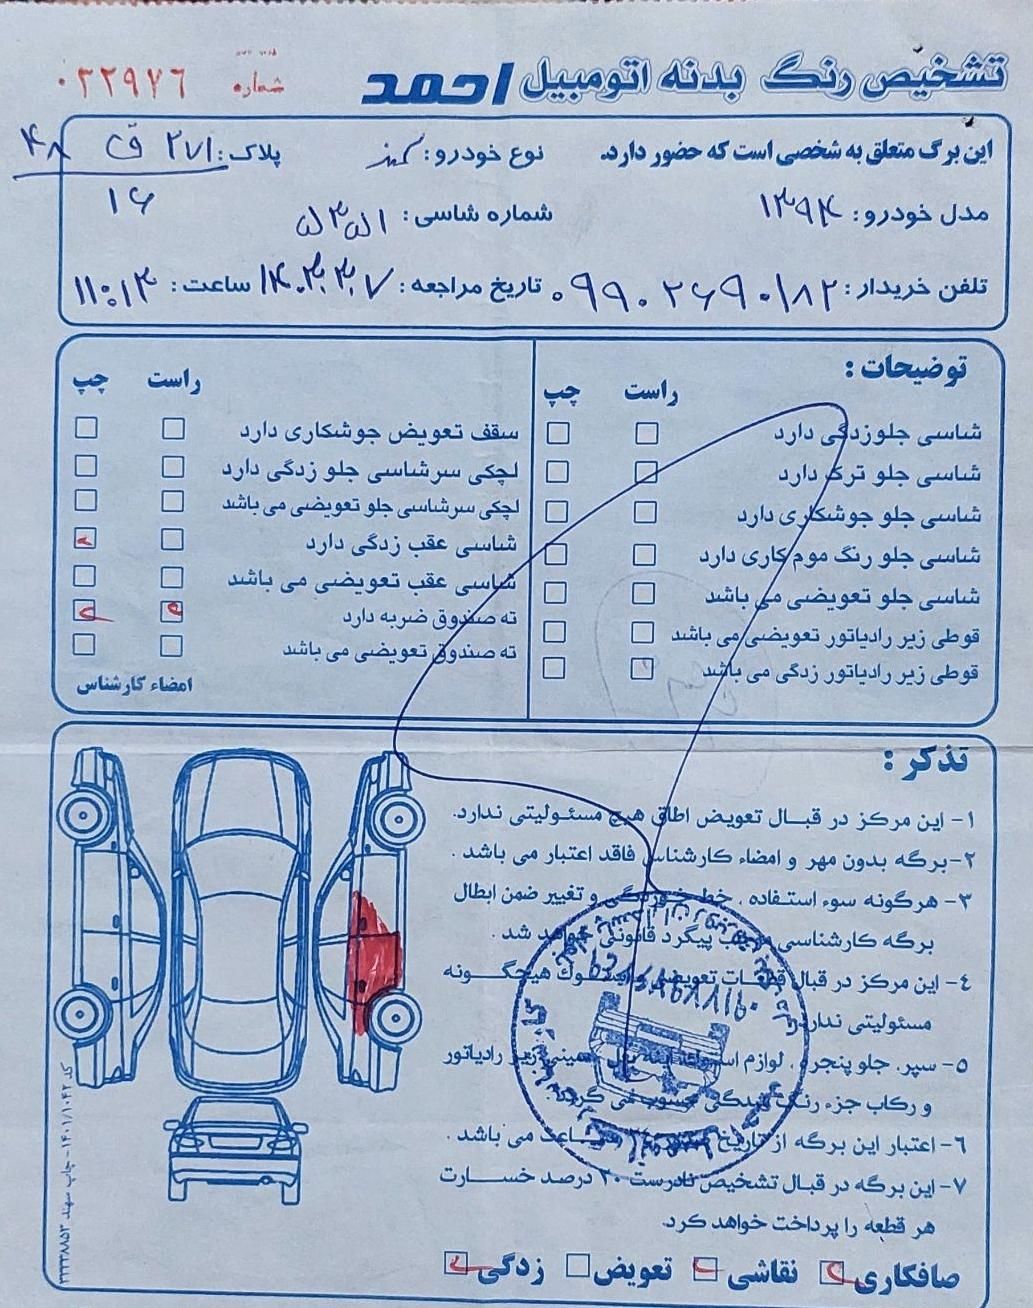 تشخیص رنگ بدنه اتومبیل احمد
شماره ۰۲۲۹۷۶
این برگ متعلق به شخصی است که حضور دارد. نوع خودرو: سمند پلاک:
مدل خودرو: ۱۳۹۴ شماره شاسی:
تلفن خریدار: ۰۹۹۰۲۶۹۰۱۸۲ تاریخ مراجعه: ساعت: ۱۱:۱۳
توضیحات:
راست چپ
شاسی جلوزدگی دارد
شاسی جلو ترک دارد
شاسی جلو جوشکاری دارد
شاسی جلو رنگ موم کاری دارد
شاسی جلو تعویضی می باشد
قوطی زیر رادیاتور تعویضی می باشد
قوطی زیر رادیاتور زدگی می باشد
راست چپ
سقف تعویض جوشکاری دارد
لچکی سرشاسی جلو زدگی دارد
لچکی سرشاسی جلو تعویضی می باشد
شاسی عقب زدگی دارد
شاسی عقب تعویضی می باشد
ته صندوق ضربه دارد
ته صندوق تعویضی می باشد
امضاء کارشناس
تذکر:
۱- این مرکز در قبال تعویض اطاق هیچ مسئولیتی ندارد.
۲- برگه بدون مهر و امضاء کارشناس فاقد اعتبار می باشد.
۳- هرگونه سوء استفاده، خط خوردگی و تغییر ضمن ابطال
برگه کارشناسی پیگرد قانونی خواهد شد.
٤- این مرکز در قبال قطعات تعویضی هیچگونه
مسئولیتی ندارد
۵- سپر، جلو پنجره، لوازم رادیاتور
و رکاب جزء رنگ
۶- اعتبار این برگه از تاریخ ساعت می باشد.
۷- این برگه در قبال تشخیص نادرست ۲۰ درصد خسارت
هر قطعه را پرداخت خواهد کرد.
صافکاری نقاشی تعویض زدگی